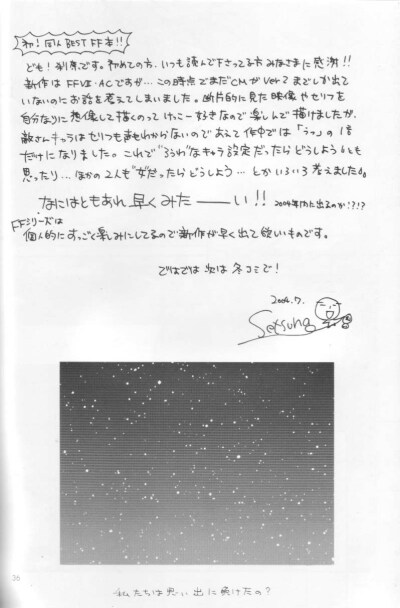 初！同人BEST FF本!!
ども！刹那です。初めての方、いつも読んで下さってる方みなさまに感謝!!
新作はFFⅦ・ACですが…この時点でまだCMがVer2までしか出て
いないのにお話を考えてしまいました。断片的に見た映像やセリフを
自分なりに想像して描くのってけっこー好きなので楽しんで描けましたが、
敵さんキャラはセリフも声もわからないのであえて作中では「うっ」の1音
だけになりました。これで"ろうわ"なキャラ設定だったらどうしようとも
思ったり…ほかの2人も"だったらどうしよう…とかいろいろ考えました。
なにはともあれ早くみたーーい!! 2004年内に出るのか?!?
FFシリーズは
個人的にすっごく楽しみにしてるので新作が早く出て欲しいものです。
ではでは次は冬コミで！
2004.7.
Setsuna
26
私たちは思い出に負けたの？